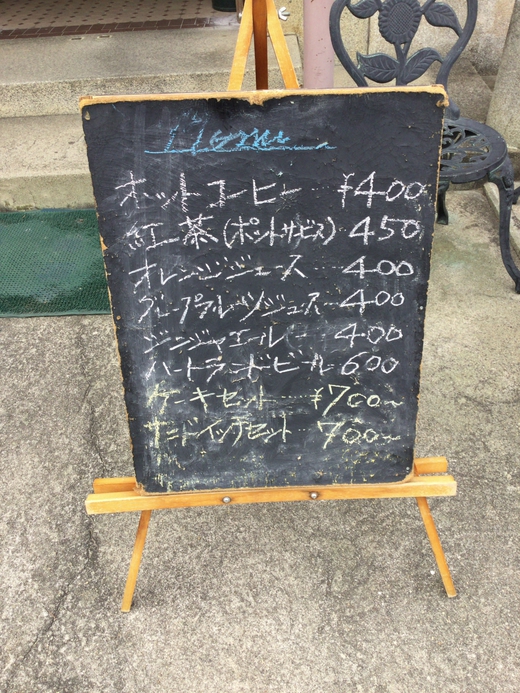 Menu
ホットコーヒー ¥400
紅茶(ポットサービス) 450
オレンジジュース … 400
グレープフルーツジュース … 400
ジンジャエール … 400
ハートランドビール 600
ケーキセット … ¥700〜
サンドイッチセット … 700〜